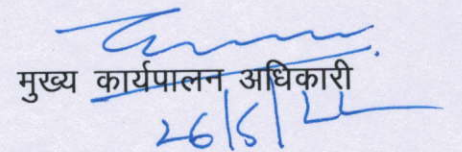 मुख्य कार्यपालन अधिकारी
26/5/22